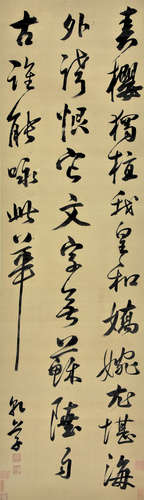 春櫻獨我皇和嬌婉尤堪海
外誇恨它文字無蘇陸自
古誰能咏此華